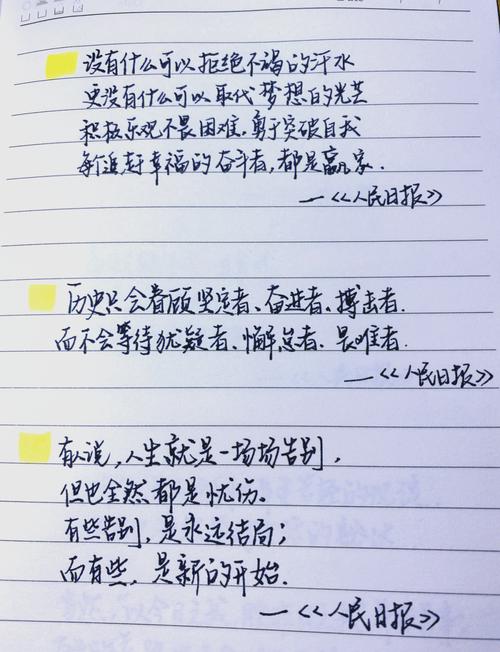 没有什么可以拒绝不竭的汗水
更没有什么可以取代梦想的光芒
积极乐观不畏困难，勇于突破自我
每个追赶幸福的奋斗者，都是赢家.
—《人民日报》
历史只会眷顾坚定者、奋进者、搏击者.
而不会等待犹疑者、懈怠者、畏难者.
—《人民日报》
有人说，人生就是一场场告别，
但也全然都是忧伤。
有些告别，是永远结局；
而有些，是新的开始.
—《人民日报》